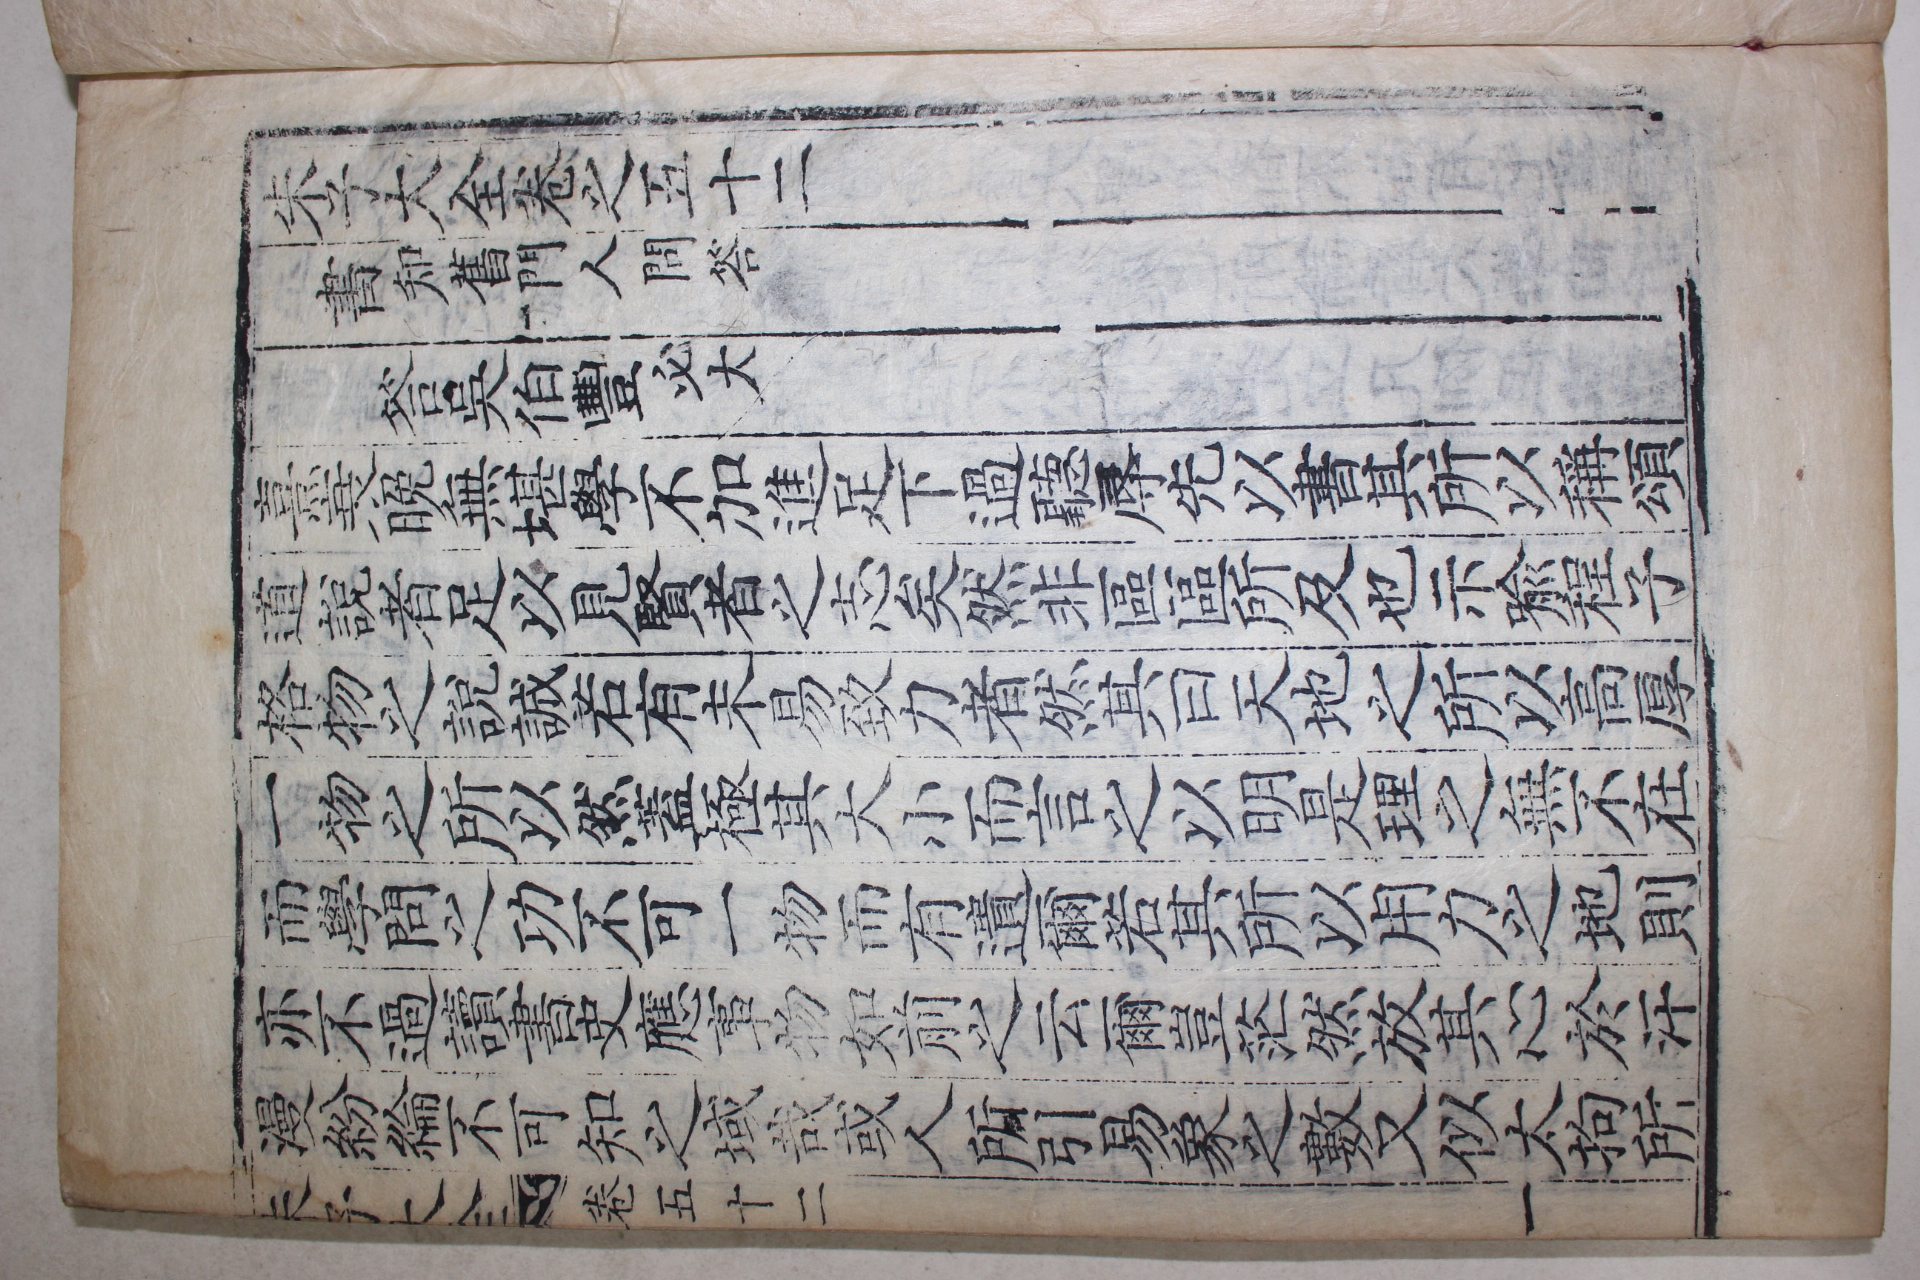 朱子大全卷之五十二
書 知舊門人問答
答吳伯豐 必大
熹衰晩無堪學不加進足下過聽辱先以書其所以稱頌
道說者足以見賢者之志矣然非區區所及也示喩程子
格物之說誠若有未易致力者然其曰天地之所以高厚
一物之所以然蓋極其大小而言之以明是理之無不在
而學問之功不可一物而有遺爾若其所以用力之地則
亦不過讀書史應事物如前之云爾豈茫然放其心於汗
漫紛綸不可知之域哉或人所引易象之數又似太拘所
朱子大全 卷五十二 一